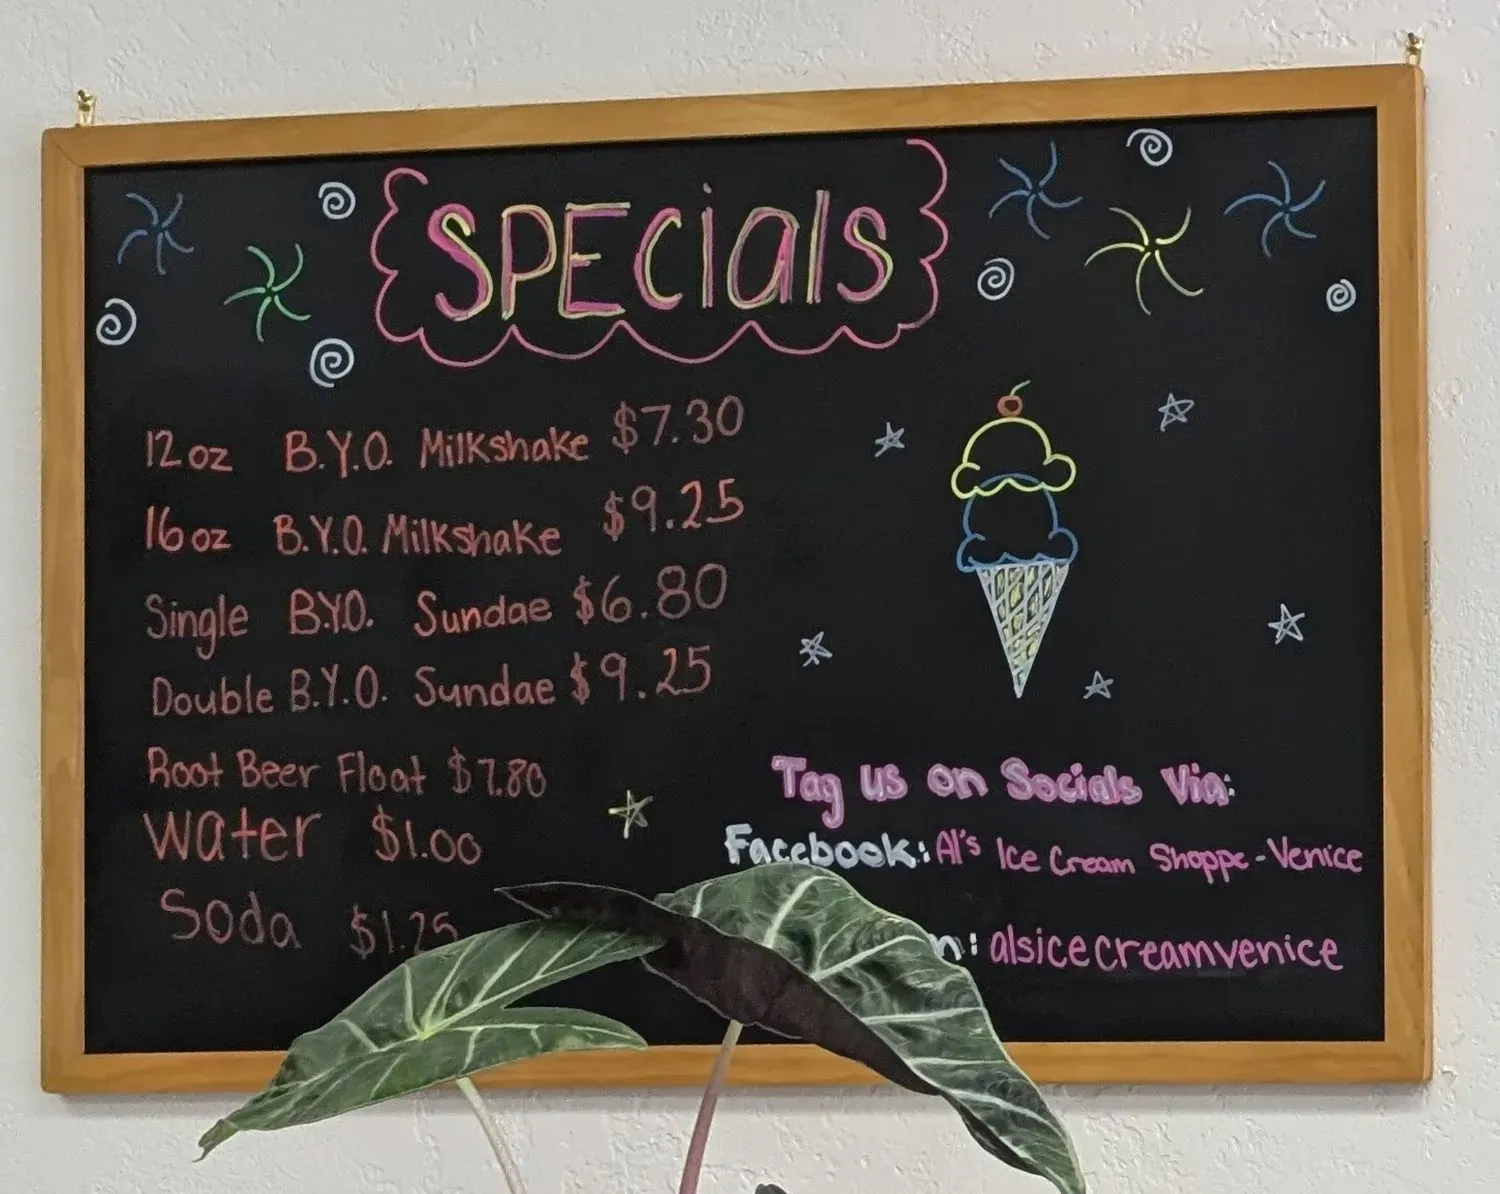 SPECialS
12oz B.Y.O. Milkshake $7.30
16oz B.Y.O. Milkshake $9.25
Single B.Y.O. Sundae $6.80
Double B.Y.O. Sundae $9.25
Root Beer Float $7.80
Water $1.00
Soda $1.25
Tag us on Socials Via:
Facebook: Al's Ice Cream Shoppe - Venice
alsicecreamvenice